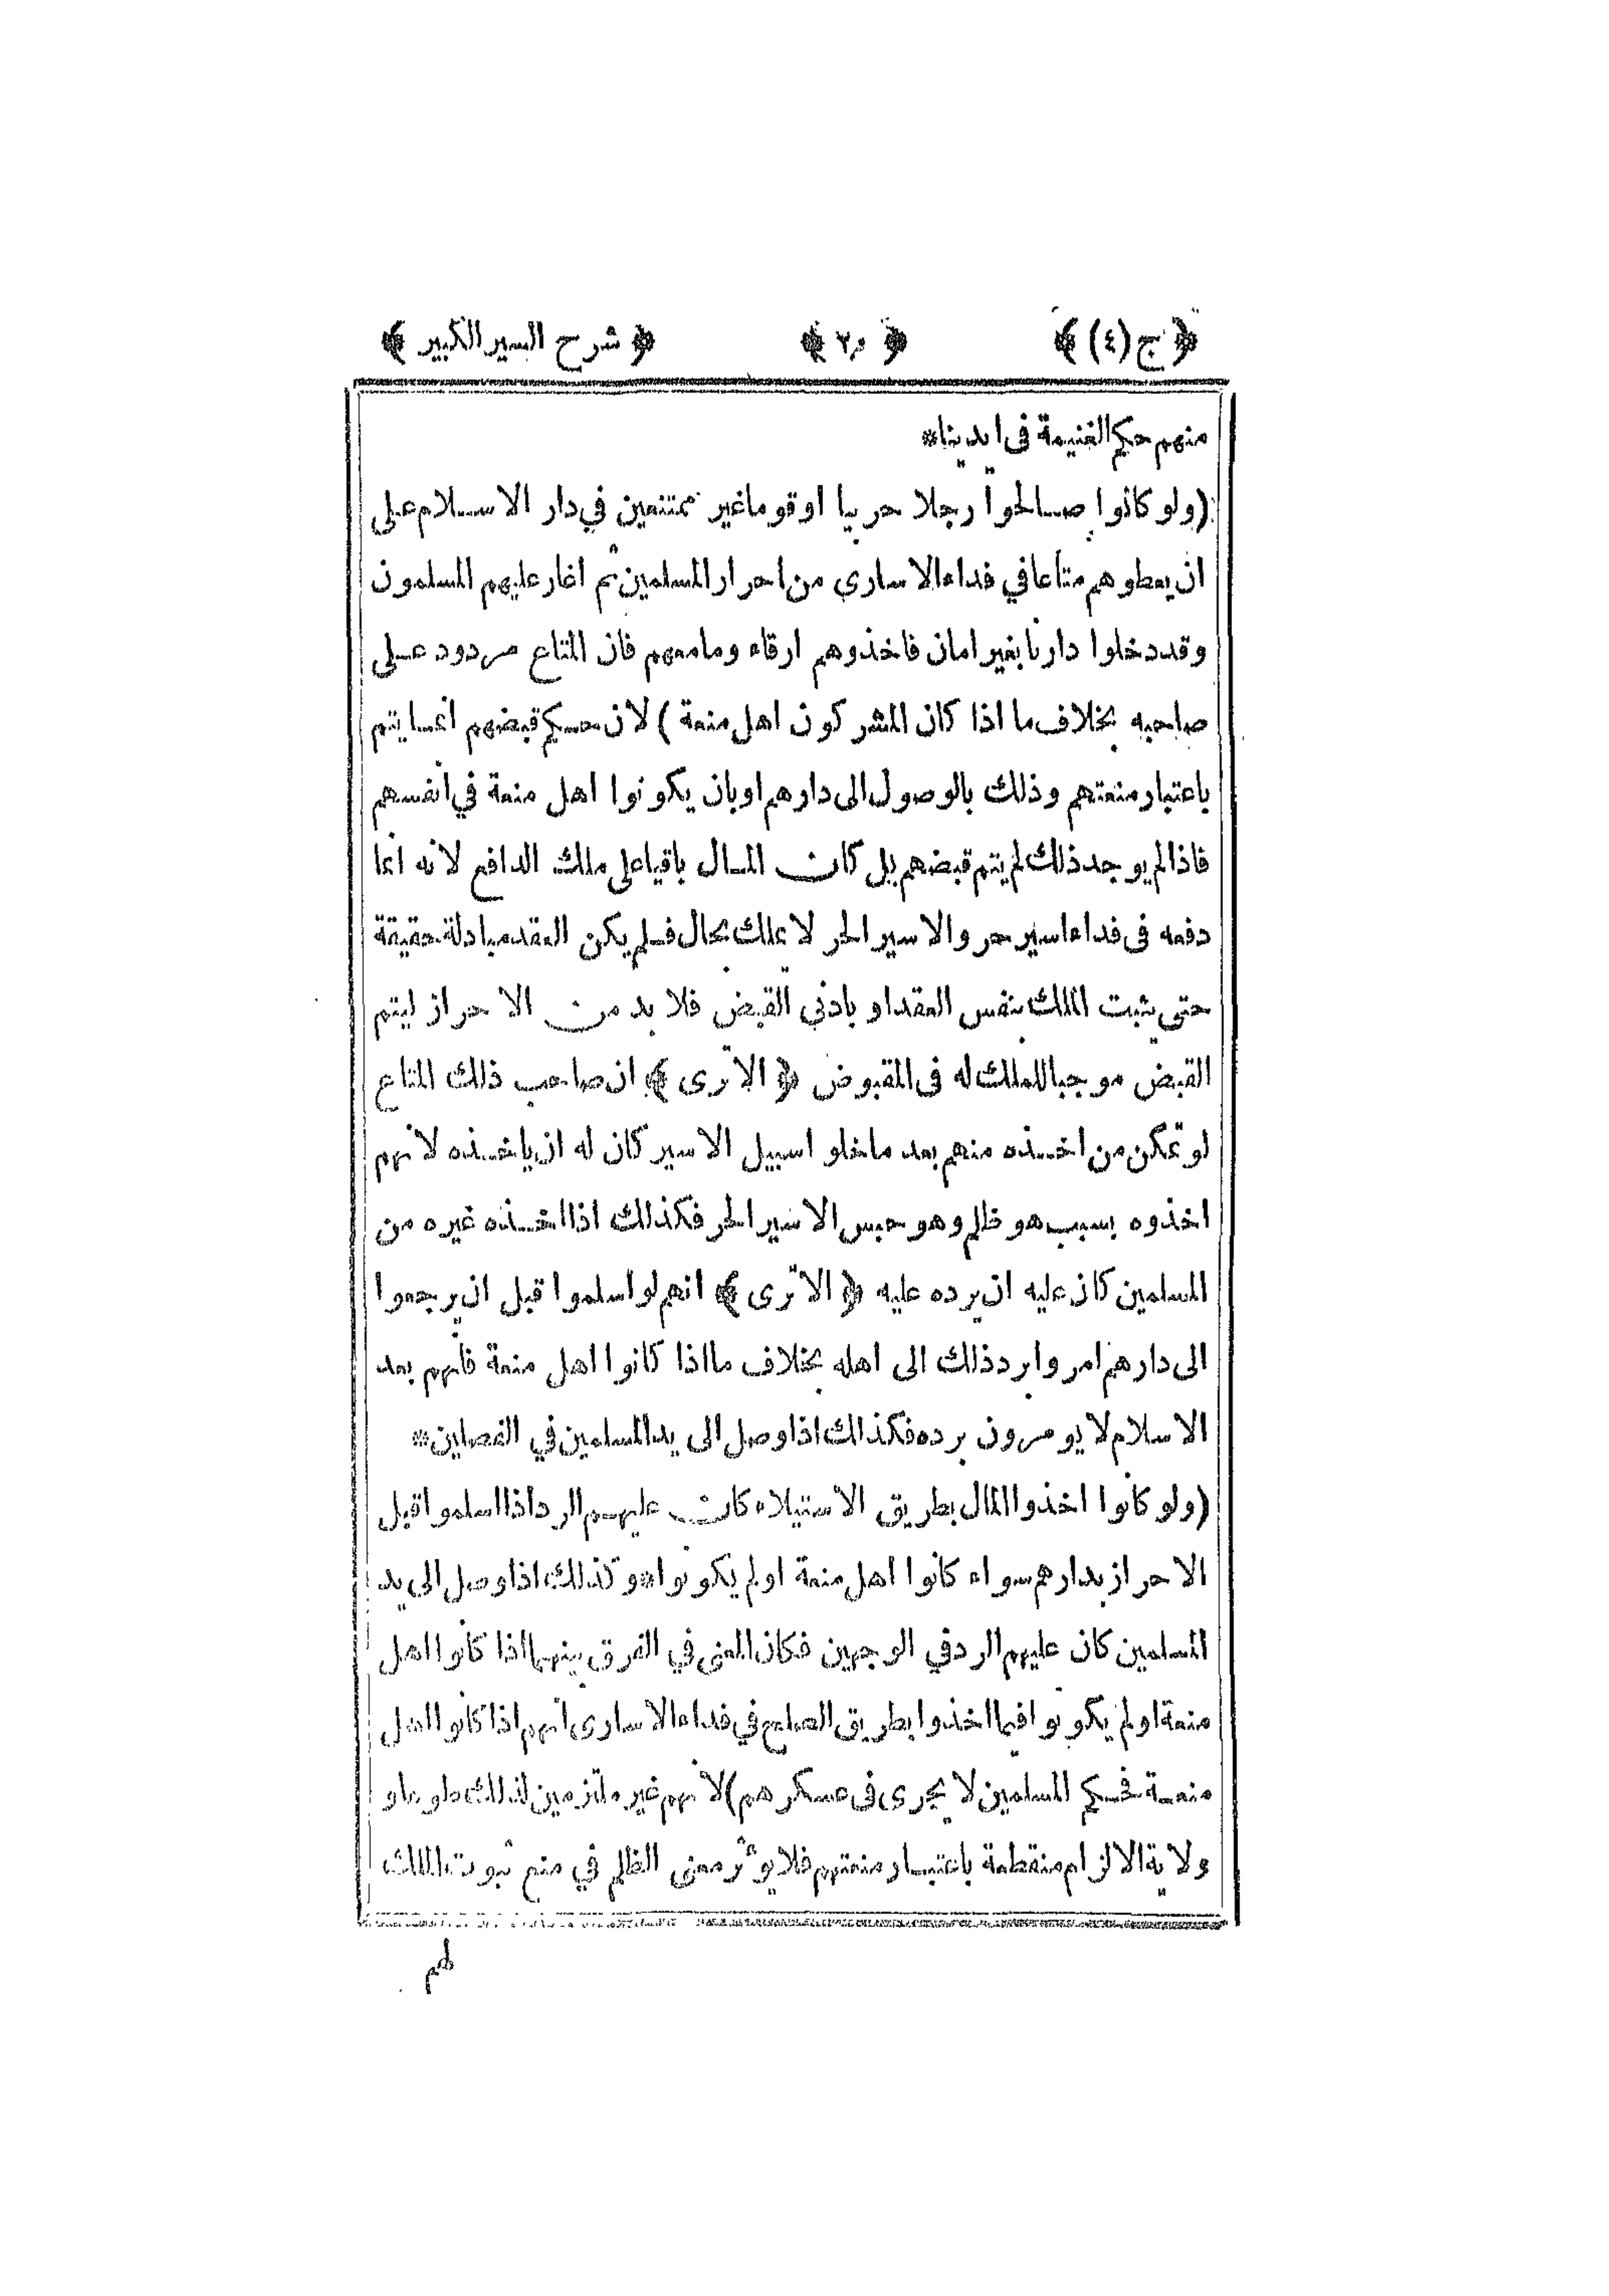 ﴿ ج (٤) ﴾ ﴿ ﴾ ﴿ شرح السير الكبير ﴾
منهم حكم الغنيمة فى ايدينا*
(ولو كانوا صالحوا رجلا حربيا اوقوما غير ممتنعين في دار الاسلام على
ان يعطوهم متاعا في فداء الاسارى من احرار المسلمين ثم اغار عليهم المسلمون
وقد دخلوا دارنا بغير امان فاخذوهم ارقاء وما معهم فان المتاع مردود على
صاحبه بخلاف ما اذا كان المشركون اهل منعة) لان حكم قبضهم انما يتم
باعتبار منعتهم وذلك بالوصول الى دارهم اوبان يكونوا اهل منعة في انفسهم
فاذا لم يوجد ذلك لم يتم قبضهم بل كان المال باقيا على ملك الدافع لانه انما
دفعه فى فداء اسير حر والاسير الحر لا يملك بحال فلم يكن العقد مبادلة حقيقة
حتى يثبت الملك بنفس العقد او بادنى القبض فلا بد من الاحراز ليتم
القبض موجبا للملك له فى المقبوض ﴿ الا ترى ﴾ ان صاحب ذلك المتاع
لو تمكن من اخذه منهم بعد ما خلوا سبيل الاسير كان له ان ياخذه لانهم
اخذوه بسبب هو ظلم وهو حبس الاسير الحر فكذلك اذا اخذه غيره من
المسلمين كان عليه ان يرده عليه ﴿ الا ترى ﴾ انهم لو اسلموا قبل ان يرجعوا
الى دارهم امروا برد ذلك الى اهله بخلاف ما اذا كانوا اهل منعة فانهم بعد
الاسلام لا يومرون برده فكذلك اذا وصل الى يد المسلمين في الفصلين*
(ولو كانوا اخذوا المال بطريق الاستيلاء كان عليهم الرد اذا اسلموا قبل
الاحراز بدارهم سواء كانوا اهل منعة او لم يكونوا* وكذلك اذا وصل الى يد
المسلمين كان عليهم الرد في الوجهين فكان المعنى في الفرق بينهما اذا كانوا اهل
منعة او لم يكونوا فيما اخذوا بطريق الصلح في فداء الاسارى انهم اذا كانوا اهل
منعة فحكم المسلمين لا يجرى فى عسكرهم) لانهم غير ملتزمين لذلك طوعا و
ولاية الالزام منقطعة باعتبار منعتهم فلا يوثر معنى الظلم في منع ثبوت الملك
لهم